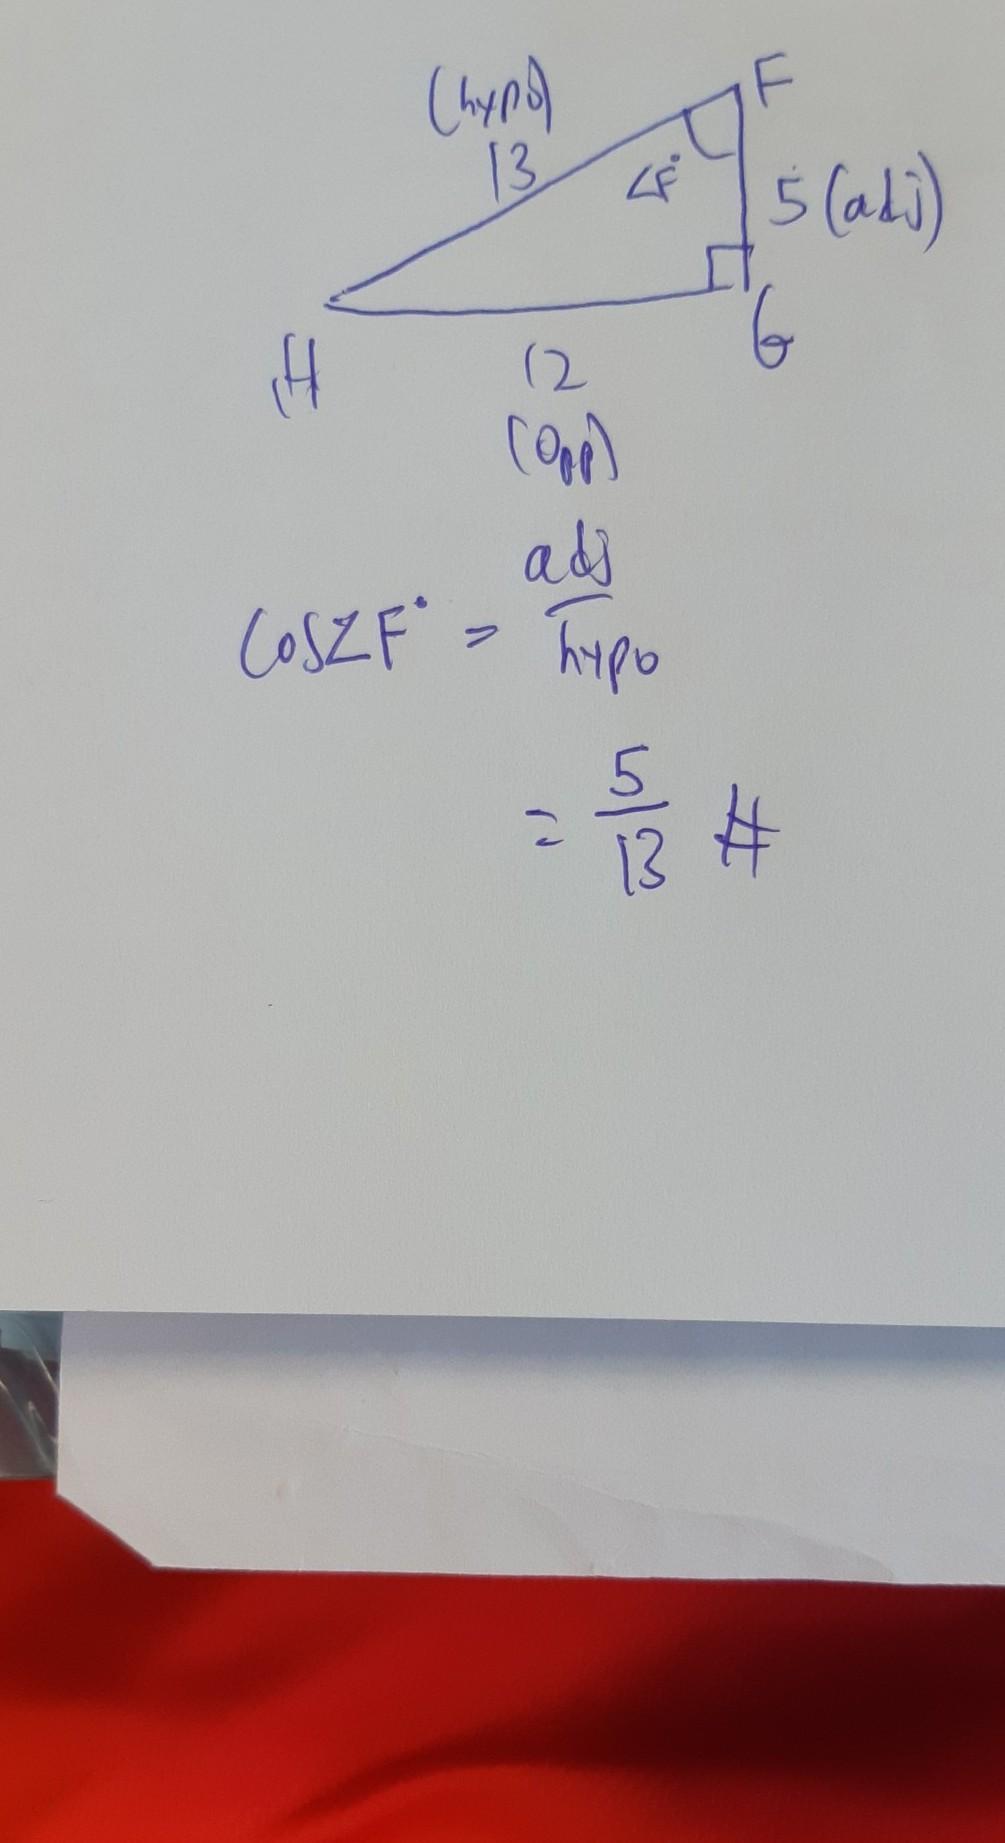 (hypo)
13
F
∠F°
5 (adj)
H
G
12
(Opp)
Cos∠F° = adj/hypo
= 5/13 #